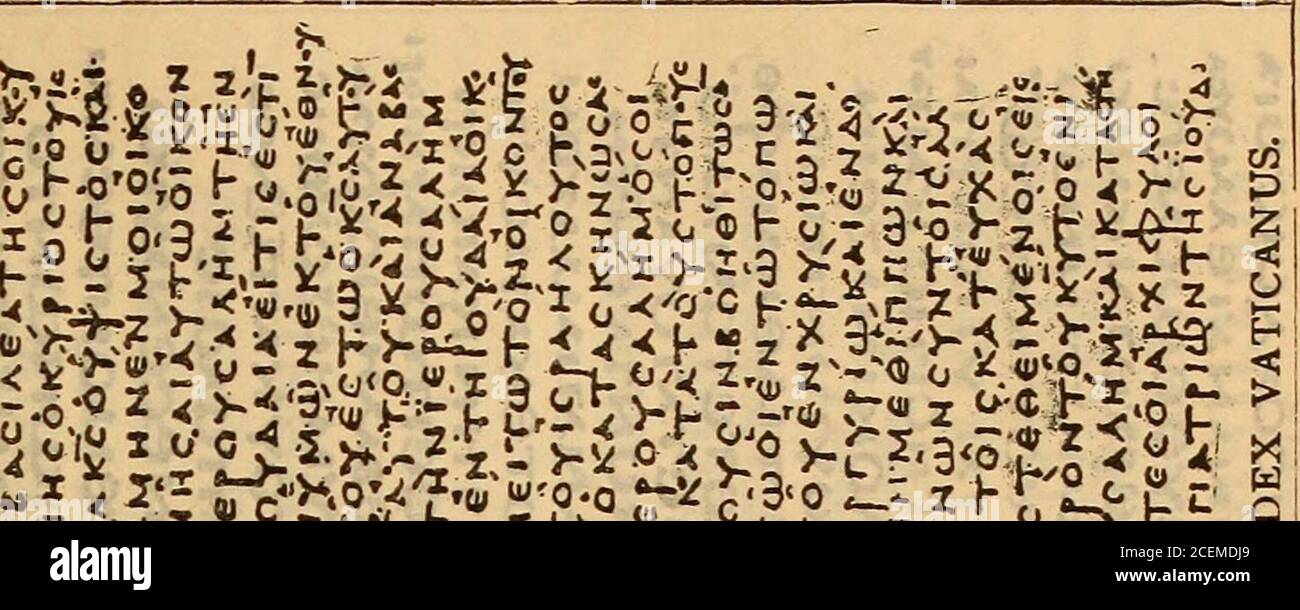 ΒΑCΙΛΕΑΤΗCΟΙΚΟΥ
ΗCΟΚΥΡΙΟCΤΟΥΙC
ΑΚCΟΥΨΙCΤΟCΚΑΙ
ΕΜΗΝΕΝΜΟΙΟΙΚΟ
ΜΗCΑΙΑΥΤΩΟΙΚΟΝ
ΕΡΟΥCΑΛΗΜΤΗΕΝ
ΟΥΔΑΙΑΕΙΤΙCΕCΤΙ
ΥΜΩΝΕΚΤΟΥΕΘΝΟΥ
ΟΥΕCΤΩΟΚCΑΥΤΟΥ
ΑΥΤΟΥΚΑΙΑΝΑΒΑC
ΤΗΝΙΕΡΟΥCΑΛΗΜ
ΕΝΤΗΙΟΥΔΑΙΑΟΙΚΟ
ΜΕΙΤΩΤΟΝΟΙΚΟΝΤΟΥ
ΤΟΥΙCΡΑΗΛΟΥΤΟC
ΟΚΑΤΑCΚΗΝΩCΑC
ΕΡΟΥCΑΛΗΜΟCΟΙ
ΚΑΤΑΤΟΥCΤΟΠΟΥC
ΟΥCΙΝΒΟΗΘΙΤΩCΑ
ΤΩΟΙΕΝΤΩΤΟΠΩ
ΤΟΥΕΝΧΡΥCΙΩΚΑΙ
ΡΓΥΡΙΩΚΑΙΕΝΔΟ
ΙΝΜΕΘΙΠΠΙΩΝΚΑΙ
ΗΝΩΝCΥΝΤΟΙCΑΛ
ΤΟΙCΚΑΤΕΥΧΑC
CΤΕΘΕΙΜΕΝΟΙCΕΙC
ΡΟΝΤΟΥΚΥΤΟΕΝΙ
CΑΛΗΜΚΑΙΚΑΤΑ
ΤΕCΟΙΑΡΧΙΦΥΛΟΙ
ΠΑΤΡΙΩΝΤΗCΙΟΥΔΑ
DEX VATICANUS.
alamy
Image ID: 2CEMDJ9
www.alamy.com